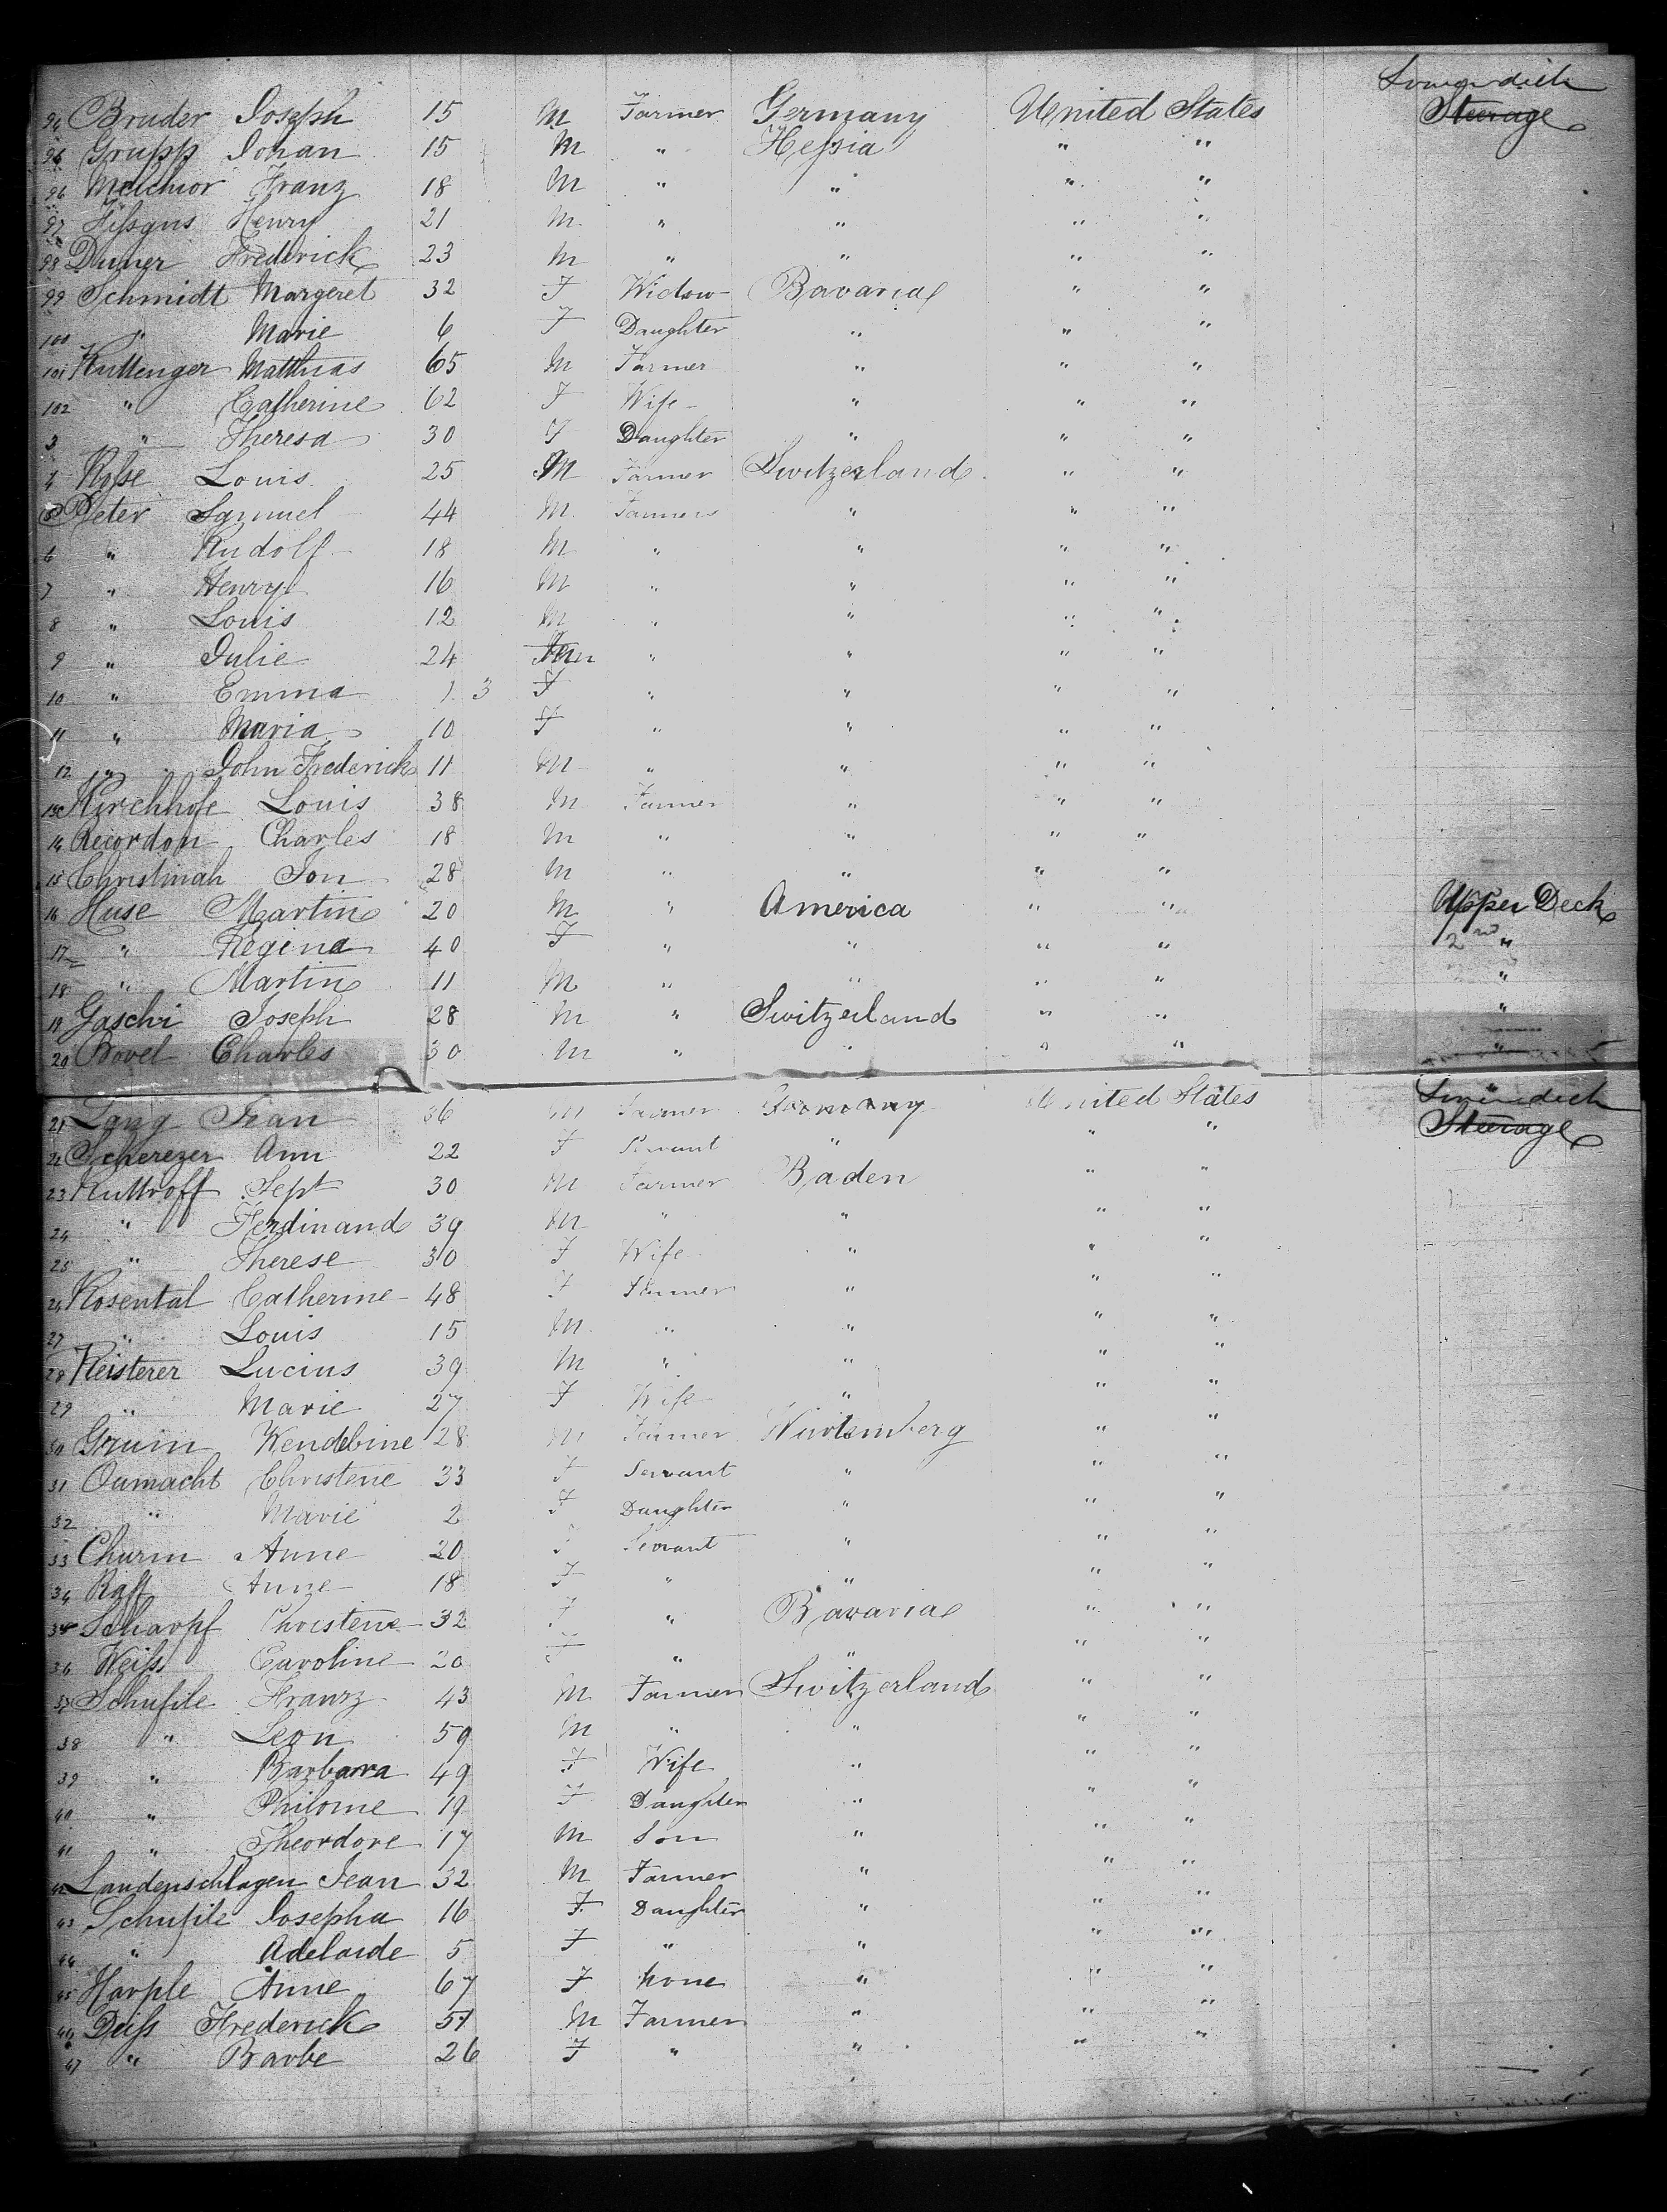 94 Bruder Joseph 15 M Farmer Germany United States Steerage
95 Grupp Johan 15 M " Hessia " "
96 Melchior Franz 18 M " " " "
97 Henry 21 M " " " "
98 Duner Frederick 23 M " " " "
99 Schmidt Margeret 32 F Widow Bavaria " "
100 " Marie 6 F Daughter " " "
101 Kuttenger Matthias 65 M Farmer " " "
102 " Catherine 62 F Wife " " "
3 " Theresa 30 F Daughter " " "
4 Rosse Louis 25 M Farmer Switzerland " "
5 Peter Samuel 44 M Farmers " " "
6 " Rudolf 18 M " " " "
7 " Henry 16 M " " " "
8 " Louis 12 M " " " "
9 " Julie 24 " " " "
10 " Emma 1 3 F " " " "
11 " Maria 10 F " " " "
12 " John Frederick 11 M " " " "
13 Kirchhofe Louis 38 M Farmer " " "
14 Recordon Charles 18 M " " " "
15 Christinah Jon 28 M " " " "
16 Huse Martin 20 M " America " " Upper Deck
17 " Regina 40 F " " " " 2nd "
18 " Martin 11 M " " " " "
19 Gaschi Joseph 28 M " Switzerland " " "
20 Bovel Charles 30 M " " " " "
21 Lang Jean 36 M Farmer Germany United States Steerage
22 Scherezer Ann 22 F Servant " " "
23 Kuttroff Sept 30 M Farmer Baden " "
24 " Ferdinand 39 M " " " "
25 " Therese 30 F Wife " " "
26 Rosental Catherine 48 F Farmer " " "
27 " Louis 15 M " " " "
28 Reisterer Lucius 39 M " " " "
29 " Marie 27 F Wife " " "
30 Gruin Wendebine 28 M Farmer Würtemberg " "
31 Oumacht Christene 33 F Servant " " "
32 " Marie 2 F Daughter " " "
33 Churin Anne 20 F Servant " " "
34 Raff Anne 18 F " " " "
35 Scharpf Christene 32 F " Bavaria " "
36 Weiss Caroline 20 F " " " "
37 Schufile Franz 43 M Farmer Switzerland " "
38 " Leon 59 M " " " "
39 " Barbara 49 F Wife " " "
40 " Philome 19 F Daughter " " "
41 " Theordore 17 M Son " " "
42 Laudenschlagen Jean 32 M Farmer " " "
43 Schufile Josepha 16 F Daughter " " "
44 " Adelaide 5 F " " " "
45 Harple Anne 67 F none " " "
46 Deiss Frederick 51 M Farmer " " "
47 " Barbe 26 F " " " "